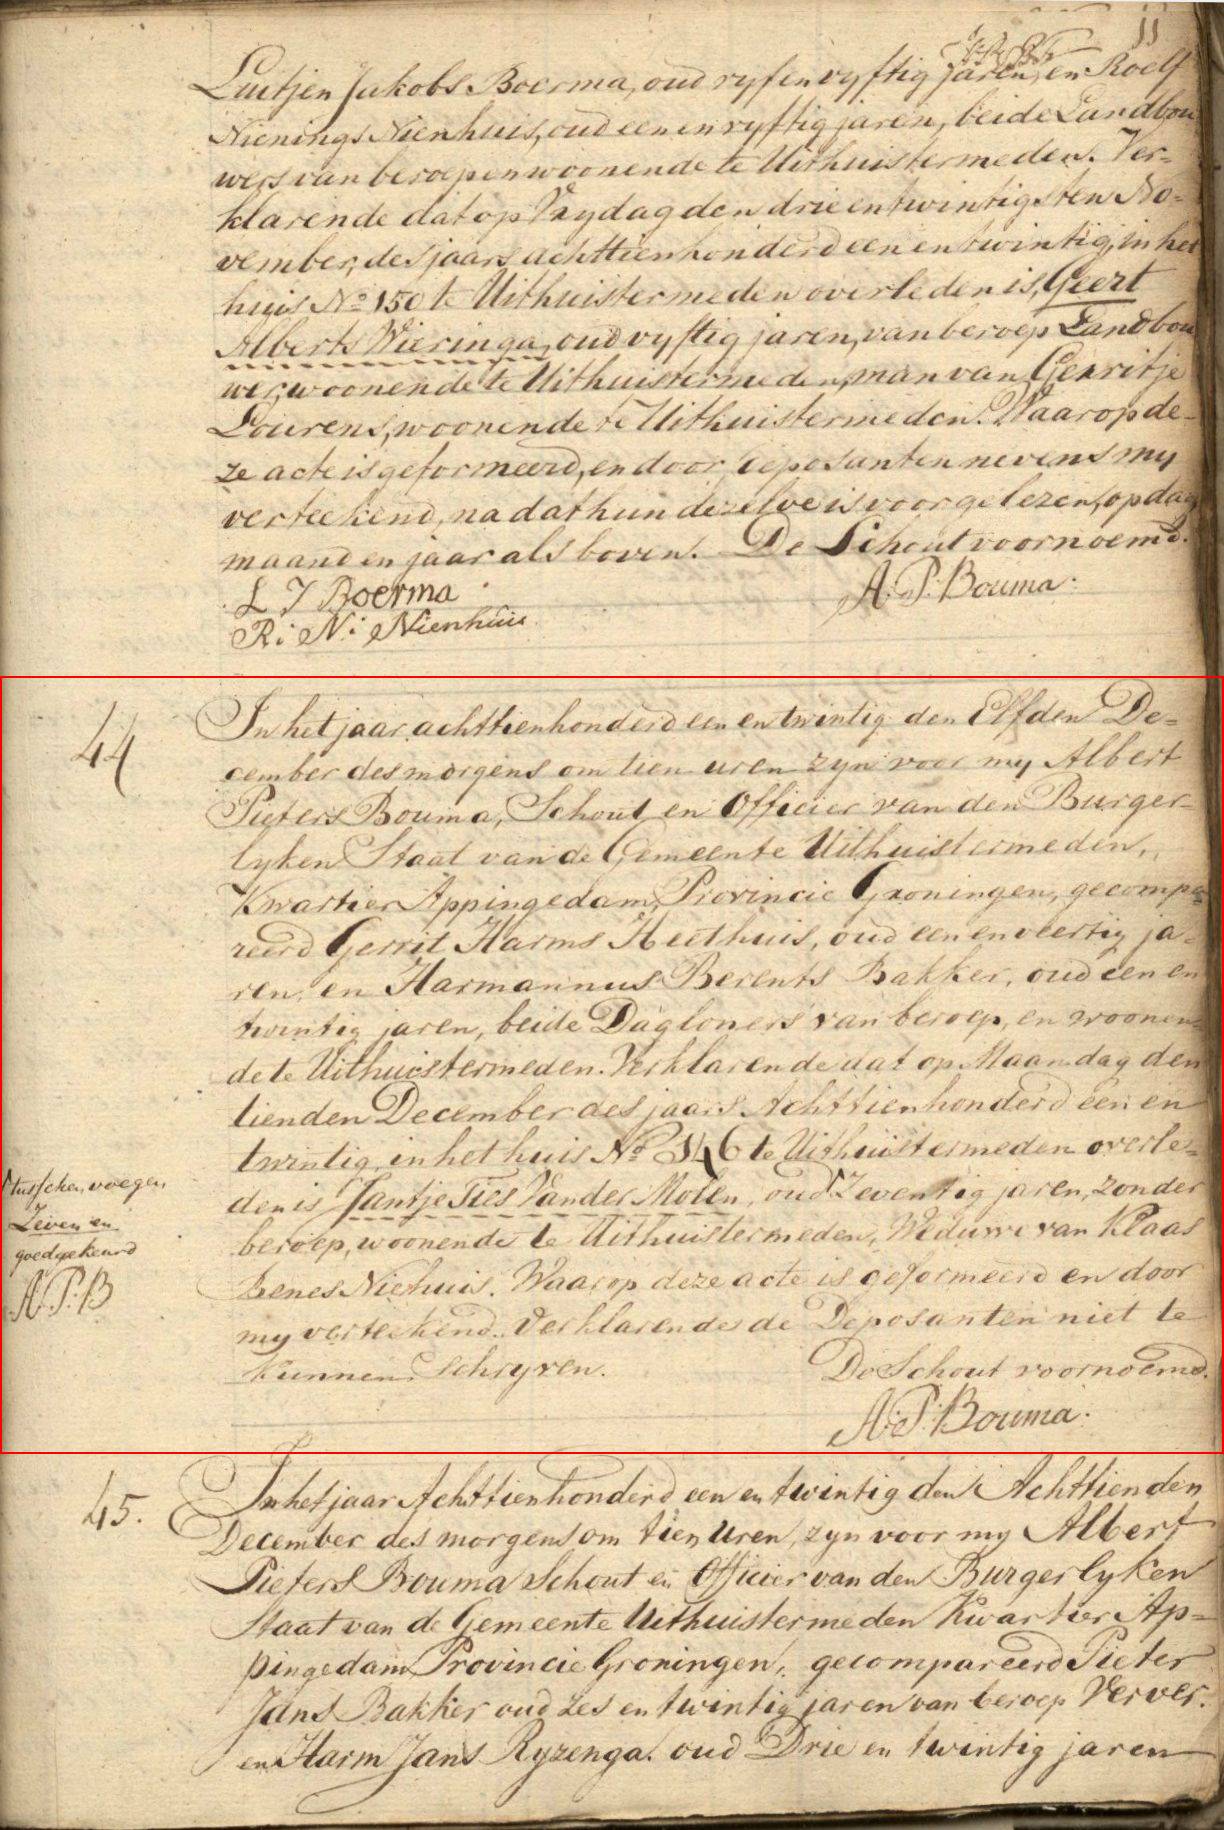 11
Luitjen Jakobs Boerma, oud vyf en vyftig jaren, en Roelf
Nienings Nienhuis, oud een en vyftig jaren, beide Landbou
wers van beroep en woonende te Uithuistermeden. Ver-
klarende dat op Vrydag den drie en twintigsten No-
vember, des jaars achttienhonderd een en twintig, in het
huis No 150 te Uithuistermeden overleden is, Geert
Alberts Wieringa, oud vyftig jaren, van beroep Landbou
wer, woonende te Uithuistermeden, man van Gerritje
Lourens, woonende te Uithuistermeden. Waarop de-
ze acte is geformeerd, en door deposanten nevens my
verteekend, na dat hun dezelve is voorgelezen, op dag
maand en jaar als boven. De Schout voornoemd.
L J Boerma
A. P. Bouma.
R: N: Nienhuis
44
In het jaar achttienhonderd een en twintig den Elfden De-
cember des morgens om tien uren zyn voor my Albert
Pieters Bouma, Schout en Officier van den Burger-
lyken Staat van de Gemeente Uithuistermeden,
Kwartier Appingedam, Provincie Groningen, gecompa
reerd Gerrit Harms Heethuis, oud een en veertig ja-
ren, en Harmannus Berents Bakker, oud een en
twintig jaren, beide Dagloners van beroep, en woonen-
de te Uithuistermeden. Verklarende dat op Maandag den
tienden December des jaars Achttienhonderd een en
twintig, in het huis No 146 te Uithuistermeden overle-
den is Jantje Ties Vander Molen, oud Zeventig jaren, zonder
beroep, woonende te Uithuistermeden, Weduwe van Klaas
Benes Niehuis. Waarop deze acte is geformeerd en door
my verteekend. Verklarende de Deposanten niet te
kunnen Schryven. De Schout voornoemd.
A. P. Bouma.
tusschen voegen
Zeven en
goedgekeurd
A. P. B
45.
In het jaar Achttienhonderd een en twintig den Achttienden
December des morgens om tien Uren, zyn voor my Albert
Pieters Bouma Schout en Officier van den Burgerlyken
Staat van de Gemeente Uithuistermeden Kwartier Ap-
pingedam, Provincie Groningen, gecompareerd Pieter
Jans Bakker oud zes en twintig jaren van beroep Verver.
en Harm Jans Ryzenga. oud Drie en twintig jaren